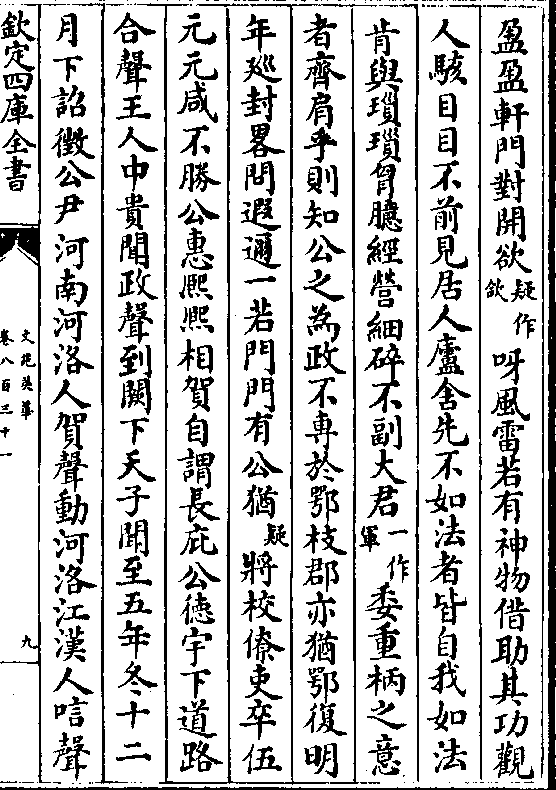 盈盈軒門對開欲疑作欱呀風雷若有神物借助其功觀
人駭目目不前見居人廬舍先不如法者皆自我如法
肯與瑣瑣胷臆經營細碎不副大君一作軍委重柄之意
者齊肩乎則知公之為政不專於鄂枝郡亦猶鄂復明
年廵封畧問遐邇一若門門有公猶疑將校僚吏卒伍
元元咸不勝公惠熈熈相賀自謂長庇公徳宇下道路
合聲王人中貴聞政聲到闕下天子聞至五年冬十二
月下詔徴公尹河南河洛人賀聲動河洛江漢人唁聲
欽定四庫全書
文苑英華
卷八百三十一
九